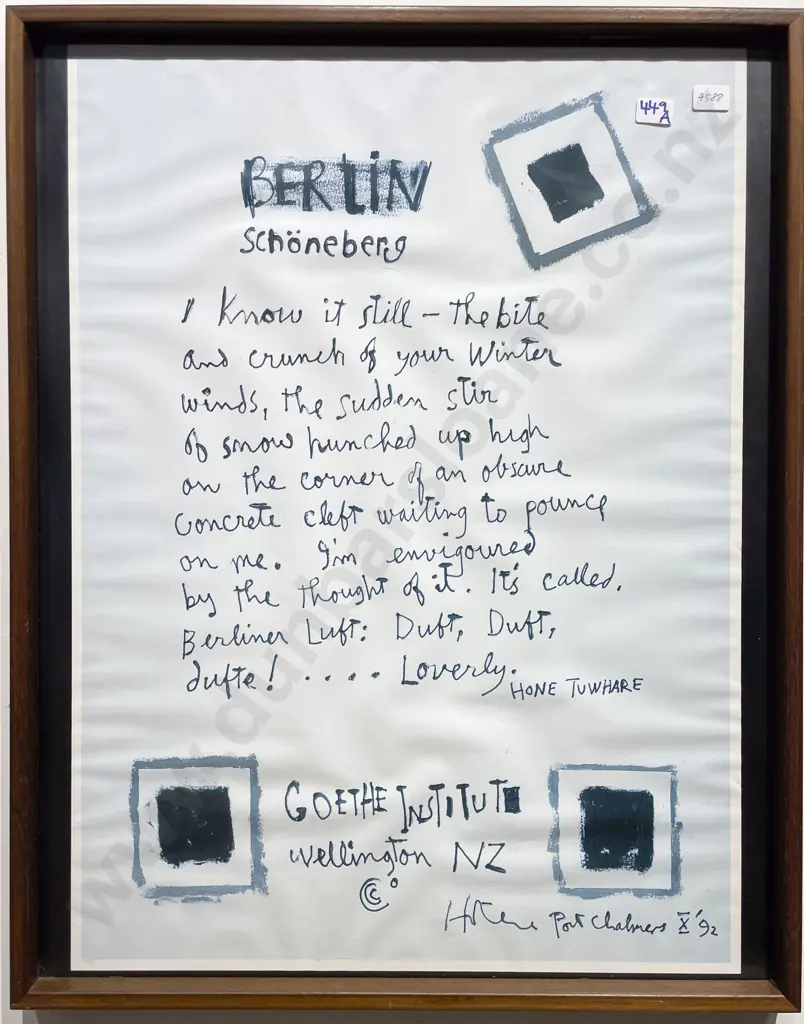 449
A
4588
BERLIN
Schöneberg
I know it still – the bite
and crunch of your Winter
winds, the sudden stir
of snow hunched up high
on the corner of an obscure
concrete cleft waiting to pounce
on me. I'm envigoured
by the thought of it. It's called.
Berliner Luft: Duft, Duft,
dufte! .... Loverly.
HONE TUWHARE
GOETHE INSTITUT
Wellington NZ
©
Hotere Port Chalmers X '92
www.dunbarsloane.co.nz